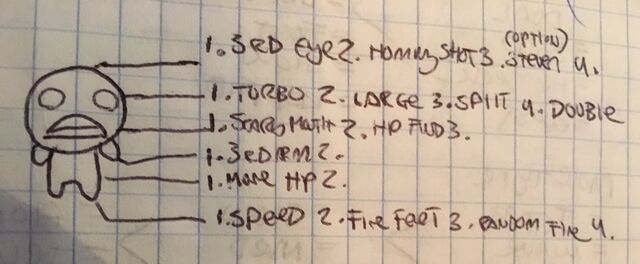 (OPTION)
1. 3RD EYE 2. HOMING SHOT 3. STEVEN 4.
1. TURBO 2. LARGE 3. SPLIT 4. DOUBLE
1. SCARY MOUTH 2. HP FWD 3.
1. 3RD ARM 2.
1. MORE HP 2.
1. SPEED 2. FIRE FEET 3. RANDOM FIRE 4.